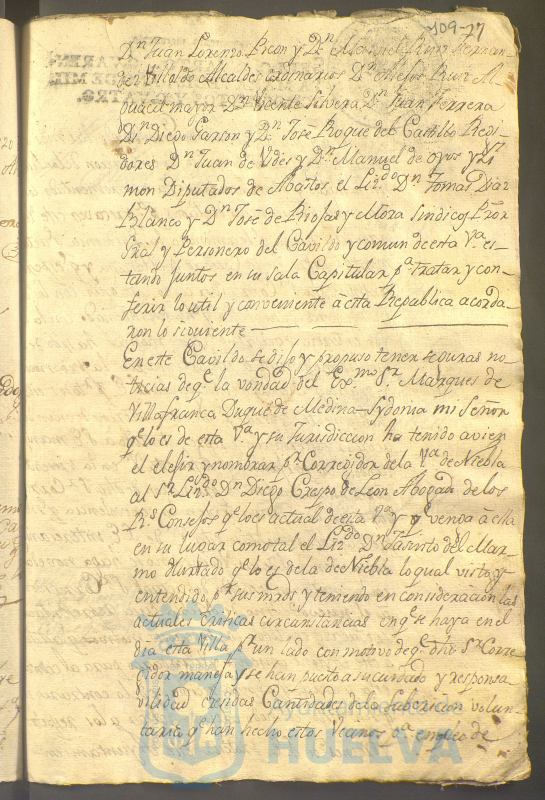 109-77
Dⁿ Juan Lorenzo Picon y Dⁿ Manuel Ruiz Hernan-
dez Villoldo Alcaldes ordinarios Dⁿ Ruiz Al-
guacil mayor Dⁿ Vicente Silvera, Dⁿ Juan Ferrera
Dⁿ Diego Garzon y Dⁿ José Roque del Castillo Regi-
dores Dⁿ Juan de Vides y Dⁿ Manuel de oyos y Li
mon Diputados de Abastos, el Lizdo Dⁿ Tomas Diaz
Blanco y Dⁿ José de Riofas y Mora Sindicos Pror
Gral y Personero del Cavildo y comun de esta Vª es-
tando juntos en su sala Capitular pª tratar y con-
ferir lo util y conveniente à esta Republica acorda-
ron lo siguiente
En este Cavildo se dijo y propuso tener seguras no-
ticias de qe la vondad del Exmo Sr Marques de
Villafranca Duque de Medina-Sydonia mi Señor
qe lo es de esta Vª y su Jurisdiccion ha tenido a vien
el elejir y nombrar pr Corregidor de la Vª de Niebla
al Sr Lizdo Dⁿ Diego Crespo de Leon Abogado de los
Rs Consejos qe lo es actual de esta Vª y pª qe venga à ella
en su lugar como tal el Lizdo Dⁿ Jacinto del Mar-
mo Hurtado qe lo es de la de Niebla lo qual visto y
entendido pr sus mrds y teniendo en consideracion las
actuales criticas circunstancias en qe se haya en el
dia esta Villa pr un lado con motivo de qe dho Sr Corre-
gidor maneja y se han puesto a su cuidado y responsa
vilidad crecidas Cantidades de la Subcricion volun-
taria qe han hecho estos Vecinos pª empleo de
HUELVA